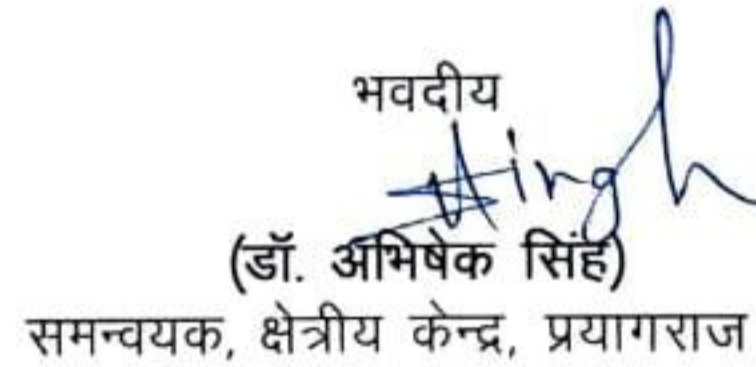 भवदीय
Singh
(डॉ. अभिषेक सिंह)
समन्वयक, क्षेत्रीय केन्द्र, प्रयागराज